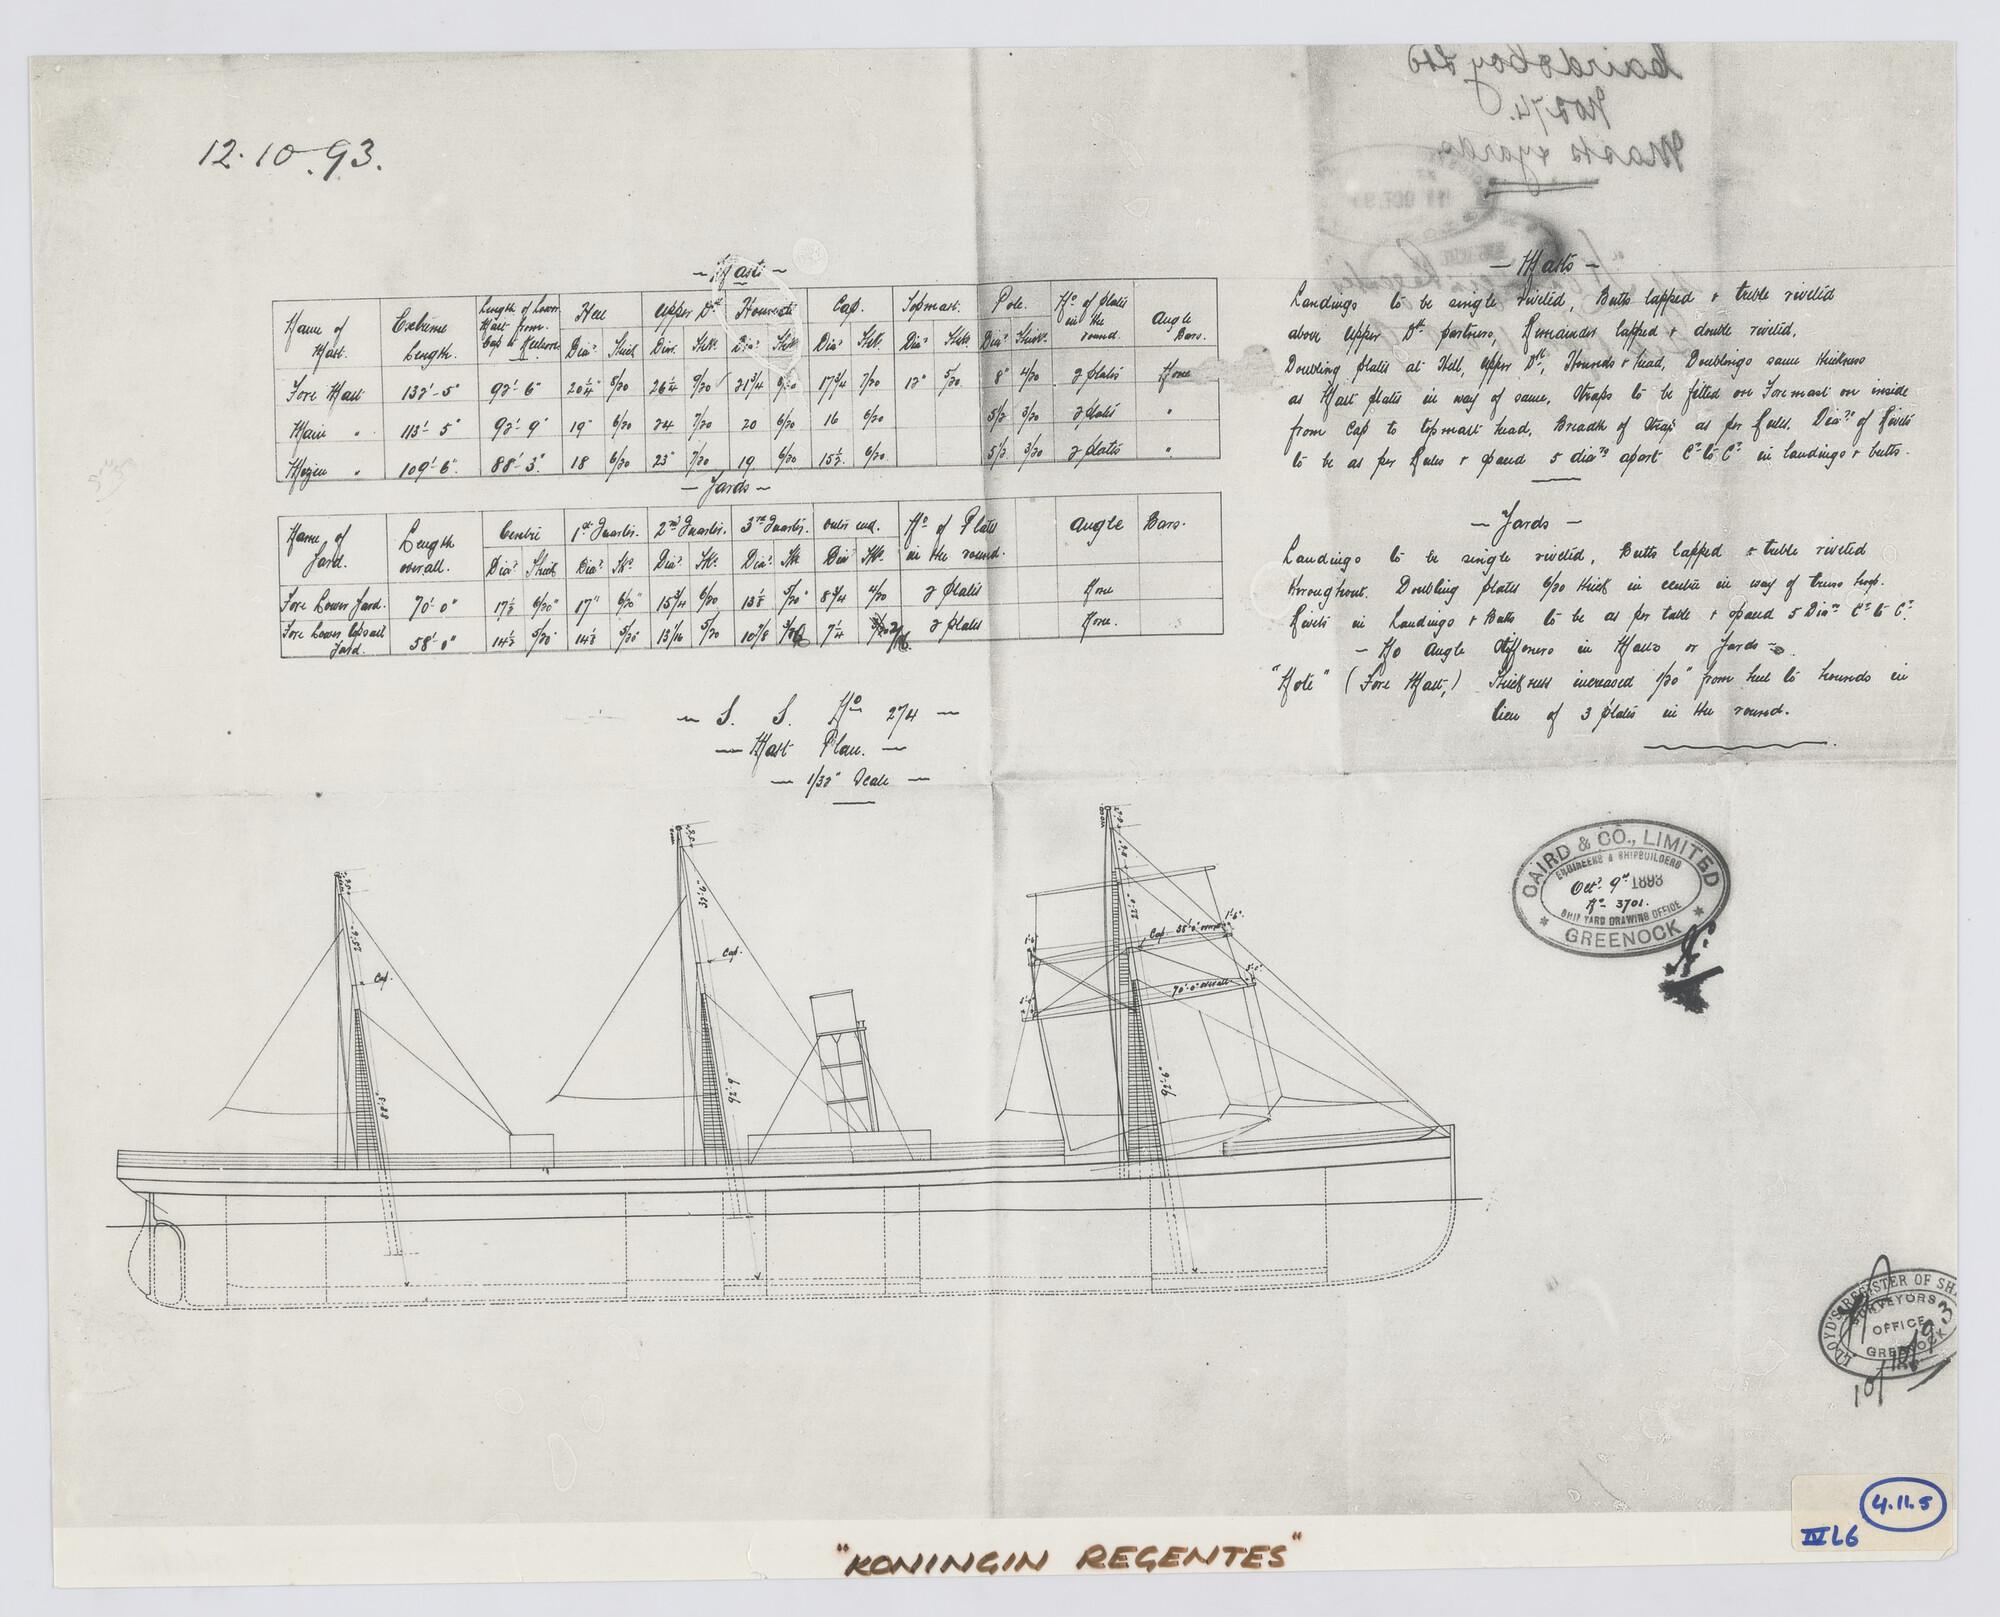 12.10.93.
- Masts -
Name of Mast. | Extreme Length. | Length of Lower Mast from Cap to Keelson | Heel Diar. Thick | Upper Dk. Diar. Thk. | Hounds Diar. Thk. | Cap. Diar. Thk. | Topmast. Diar. Thk. | Pole. Diar. Thick. | No of plates in the round. | Angle Bars.
Fore Mast | 132'-5" | 92'-6" | 20 1/4" | 5/20 | 26 1/4 | 9/20 | 21 3/4 | 17 3/4 | 7/20 | 12" | 5/20 | 8" | 4/20 | 2 plates | None
Main " | 113'-5" | 92'-9" | 19" | 6/20 | 24 | 7/20 | 20 | 6/20 | 16 | 6/20 | 5 1/2 | 3/20 | 2 plates | "
Mizen " | 109'-6" | 88'-3" | 18 | 6/20 | 23" | 7/20 | 19 | 6/20 | 15 1/2 | 6/20 | 5 1/2 | 3/20 | 2 plates | "
- Yards -
Name of Yard. | Length overall. | Centre Diar. Thick | 1st Quarter. Diar. Thk. | 2nd Quarter. Diar. Thk. | 3rd Quarter. Diar. Thk | Outer end. Diar Thk. | No of Plates in the round. | Angle Bars.
Fore Lower Yard. | 70'-0" | 17 1/2 | 6/20" | 17" | 6/20" | 15 3/4 | 6/20 | 13 1/8 | 5/20" | 8 3/4 | 4/20 | 2 plates | None
Fore Lower topsail Yard. | 58'-0" | 14 1/2 | 5/20" | 14 1/8 | 5/20" | 13 1/16 | 5/20 | 10 7/8 | 7 1/4 | 2 plates | None.
- S. S. No 274 -
- Mast Plan. -
- 1/32" Scale -
Caird & Coy Ltd
No 274.
Masts & yards.
- Masts -
Landings to be single riveted, Butts lapped & treble riveted
above Upper Dk partners, Remainder lapped & double riveted.
Doubling plates at Heel, Upper Dk, Hounds & head, Doublings same thickness
as Mast plates in way of same. Straps to be fitted on Foremast on inside
from Cap to topmast head, Breadth of Strap as per Rules. Diars of Rivets
to be as per Rules & spaced 5 diars apart Cr to Cr in landings & butts.
- Yards -
Landings to be single riveted, Butts lapped & treble riveted
throughout. Doubling plates 6/20 thick in centre in way of truss hoop.
Rivets in Landings & Butts to be as per table & spaced 5 Diars Cr to Cr.
- No Angle Stiffeners in Masts or Yards -
"Note" (Fore Mast,) Thickness increased 1/20" from heel to hounds in
lieu of 3 plates in the round.
CAIRD & CO., LIMITED
ENGINEERS & SHIPBUILDERS
Octr 9th 1893
No 3701.
SHIP YARD DRAWING OFFICE
GREENOCK
Cap.
88'-3"
32'-6"
Cap.
92'-9"
22'-0"
Cap.
1'-6"
3'-0"
70'-0" overall
92'-6"
LLOYD'S REGISTER OF SH
SURVEYORS
OFFICE
GREENOCK
10/10/93
4.11.5
IV L6
"KONINGIN REGENTES"